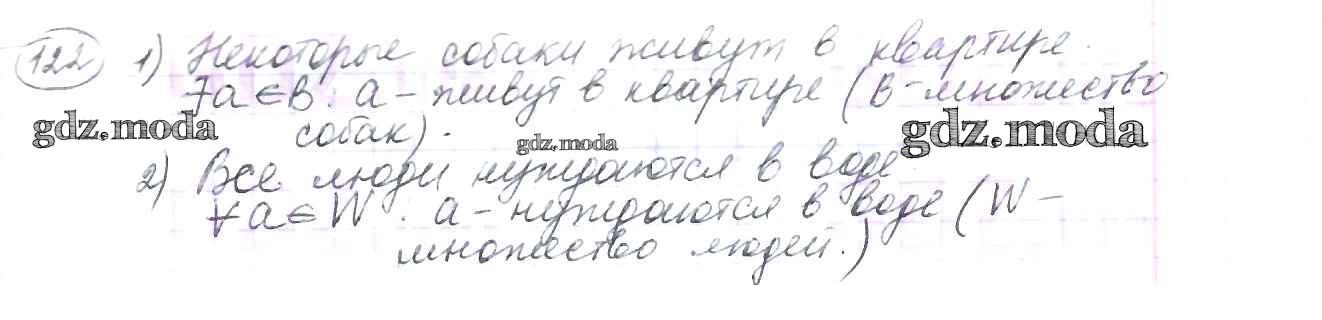 122 1) Некоторые собаки живут в квартире.
∃a∈B: a - живут в квартире (B - множество
gdz.moda собак). gdz.moda gdz.moda
2) Все люди нуждаются в воде
∀a∈W: a - нуждаются в воде (W -
множество людей.)